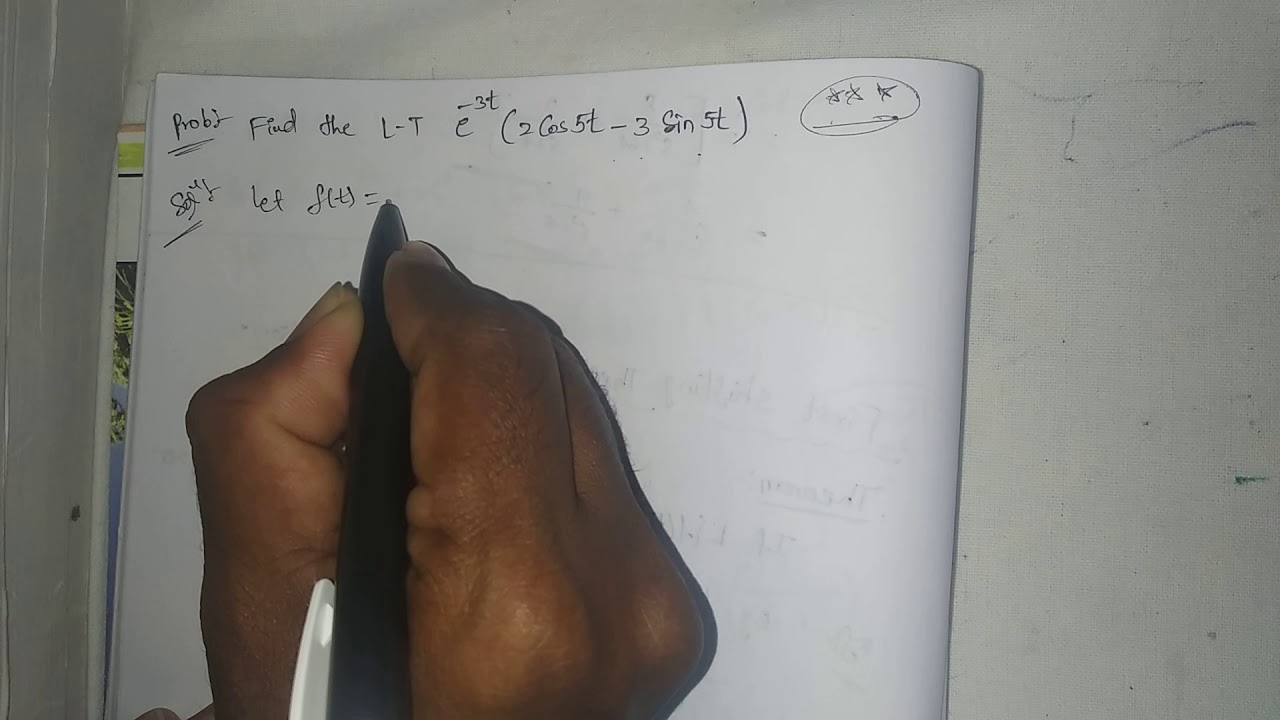 Prob:- Find the L-T e^-3t (2 Cos 5t - 3 Sin 5t) .
Sol^n:- let f(t) =